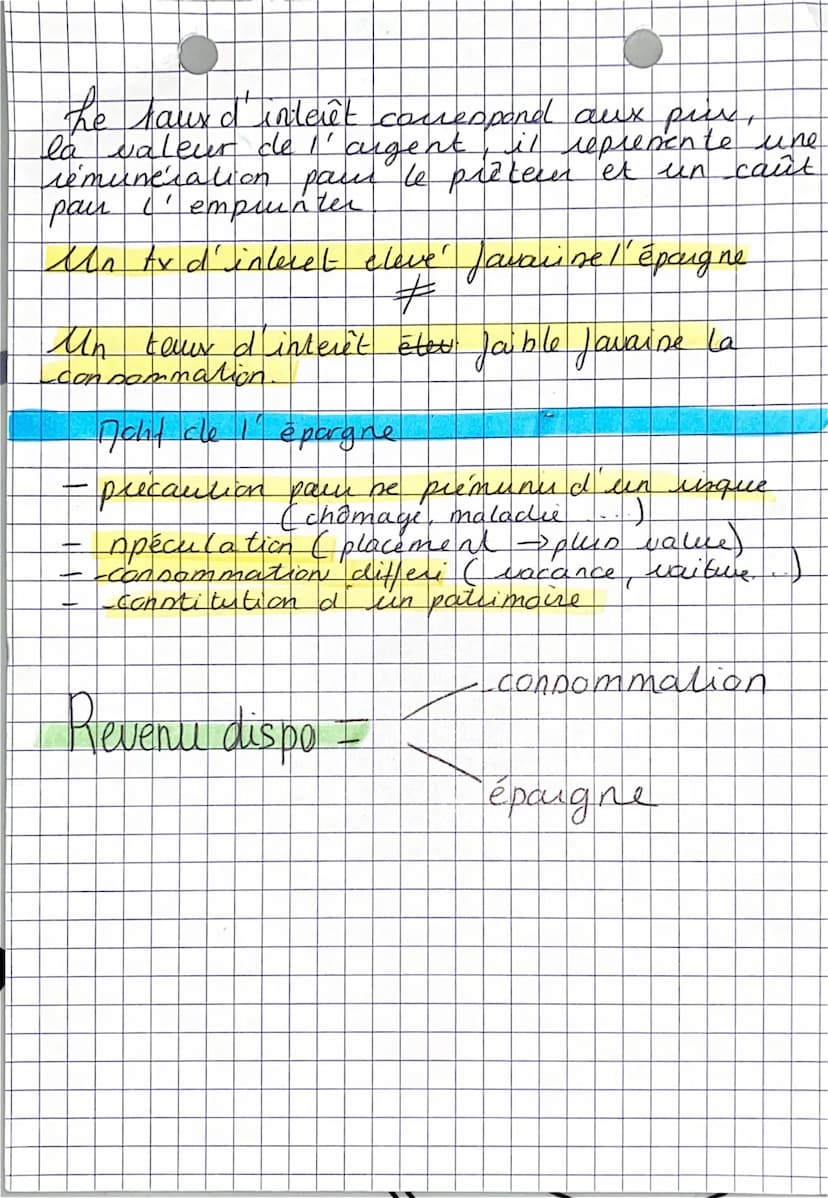 Le taux d'interêt correspond aux prix,
la valeur de l'argent, il représente une
rémunération pour le prêteur et un coût
pour l'emprunter.
Un tx d'interet elevé favorise l'épargne
≠
Un taux d'interêt faible favorise la
consommation.
de l'épargne
- précaution pour se prémunir d'un risque
(chômage, maladie ...)
- spéculation (placement → plus value)
- consommation differi (vacance, voiture...)
- constitution d'un patrimoire
consommation
Revenu dispo =
épargne